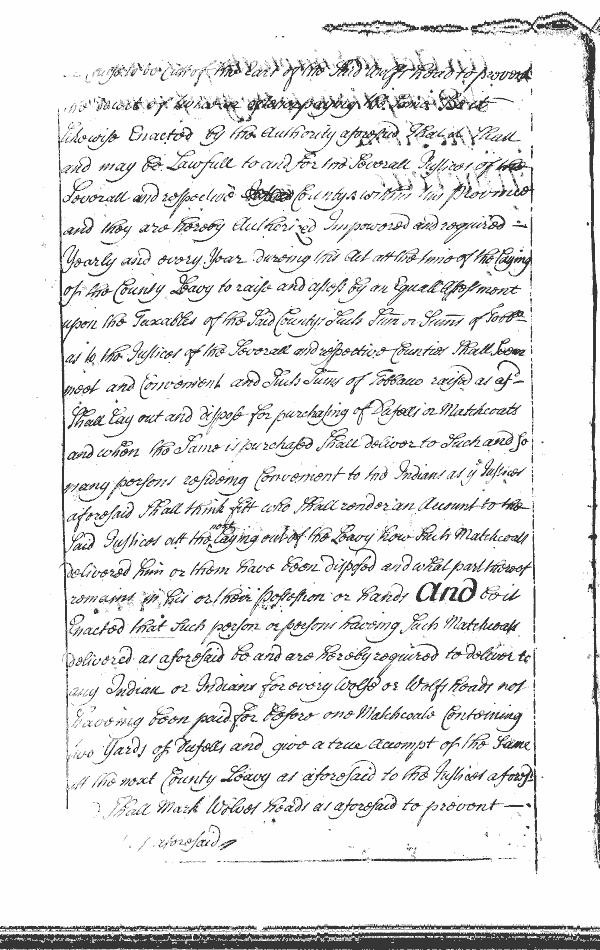 to be Cut of the Eart of the Said Wolfs head to prevent
the deceit of paying Be it
likewise Enacted by the Authority aforesaid That it Shall
and may be Lawfull to and for the Severall Justices of the
Severall and respective Countys within this Province
and they are hereby Authorised Impowered and required
Yearly and every Year during this Act at the time of the laying
of the County Leavy to raise and assess by an Equall Assessment
upon the Taxables of the Said County Such Sum or Sums of Tobbo
as to the Justices of the Severall and respective Counties Shall Seem
meet and Convenient and Such Sums of Tobbaco raised as afd
Shall lay out and dispose for purchasing of Dufells or Matchcoats
and when the Same is purchased Shall deliver to Such and So
many persons resideing Convenient to the Indians as ye Justices
aforesaid Shall think fitt who Shall render an Account to the
Said Justices att the next laying out of the Leavy how Such Matchcoats
delivered him or them have been disposed and what part thereof
remains in his or their possession or hands And be it
Enacted that Such person or persons haveing Such Matchcoats
delivered as aforesaid be and are hereby required to deliver to
any Indian or Indians for every Wolfe or Wolfs heads not
haveing been paid for before one Matchcoate Conteining
two Yards of Dufells and give a true Accompt of the Same
att the next County Leavy as aforesaid to the Justices aforesd
Shall Mark Wolves heads as aforesaid to prevent
aforesaid